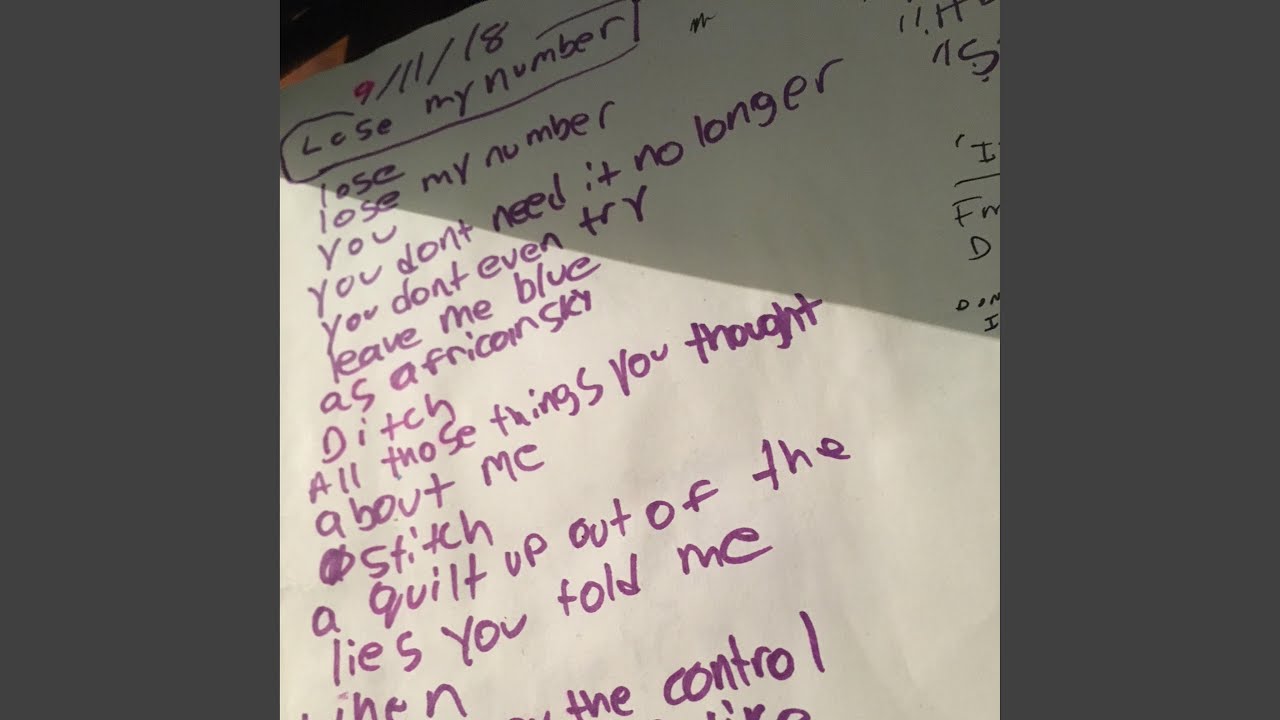 9/11/18
Lose my number
lose
lose my number
you
you dont need it no longer
you dont even try
leave me blue
as africain sky
Ditch
All those things you thought
about me
stitch
a quilt up out of the
lies you told me
the control
"I
Fm
D
I